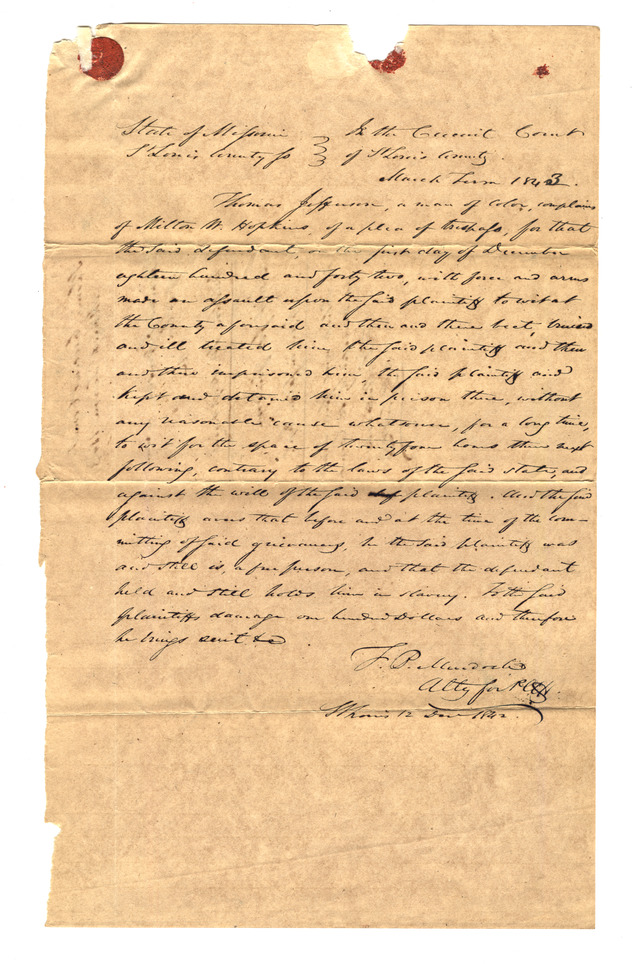 State of Missouri } In the Circuit Court
St Louis County ss } of St Louis County.
March Term 1843.
Thomas Jefferson, a man of color, complains
of Milton W. Hopkins, of a plea of trespass, for that
the said defendant, on the first day of December
eighteen hundred and forty two, with force and arms
made an assault upon the said plaintiff to wit at
the County aforesaid and then and there beat, bruised
and ill treated him the said plaintiff and then
and there imprisoned him, the said plaintiff and
kept and detained him in prison there, without
any reasonable cause whatsoever, for a long time,
to wit for the space of twenty four hours then next
following, contrary to the laws of the said state, and
against the will of the said plaintiff. And the said
plaintiff avers that before and at the time of the com-
mitting of said grievances, he the said plaintiff was
and still is a free person, and that the defendant
held and still holds him in slavery. To the said
plaintiffs damage one hundred Dollars and therefore
he brings suit &c
F. P. Murdoch
Atty for Pltff.
St Louis 12 Decr 1842.